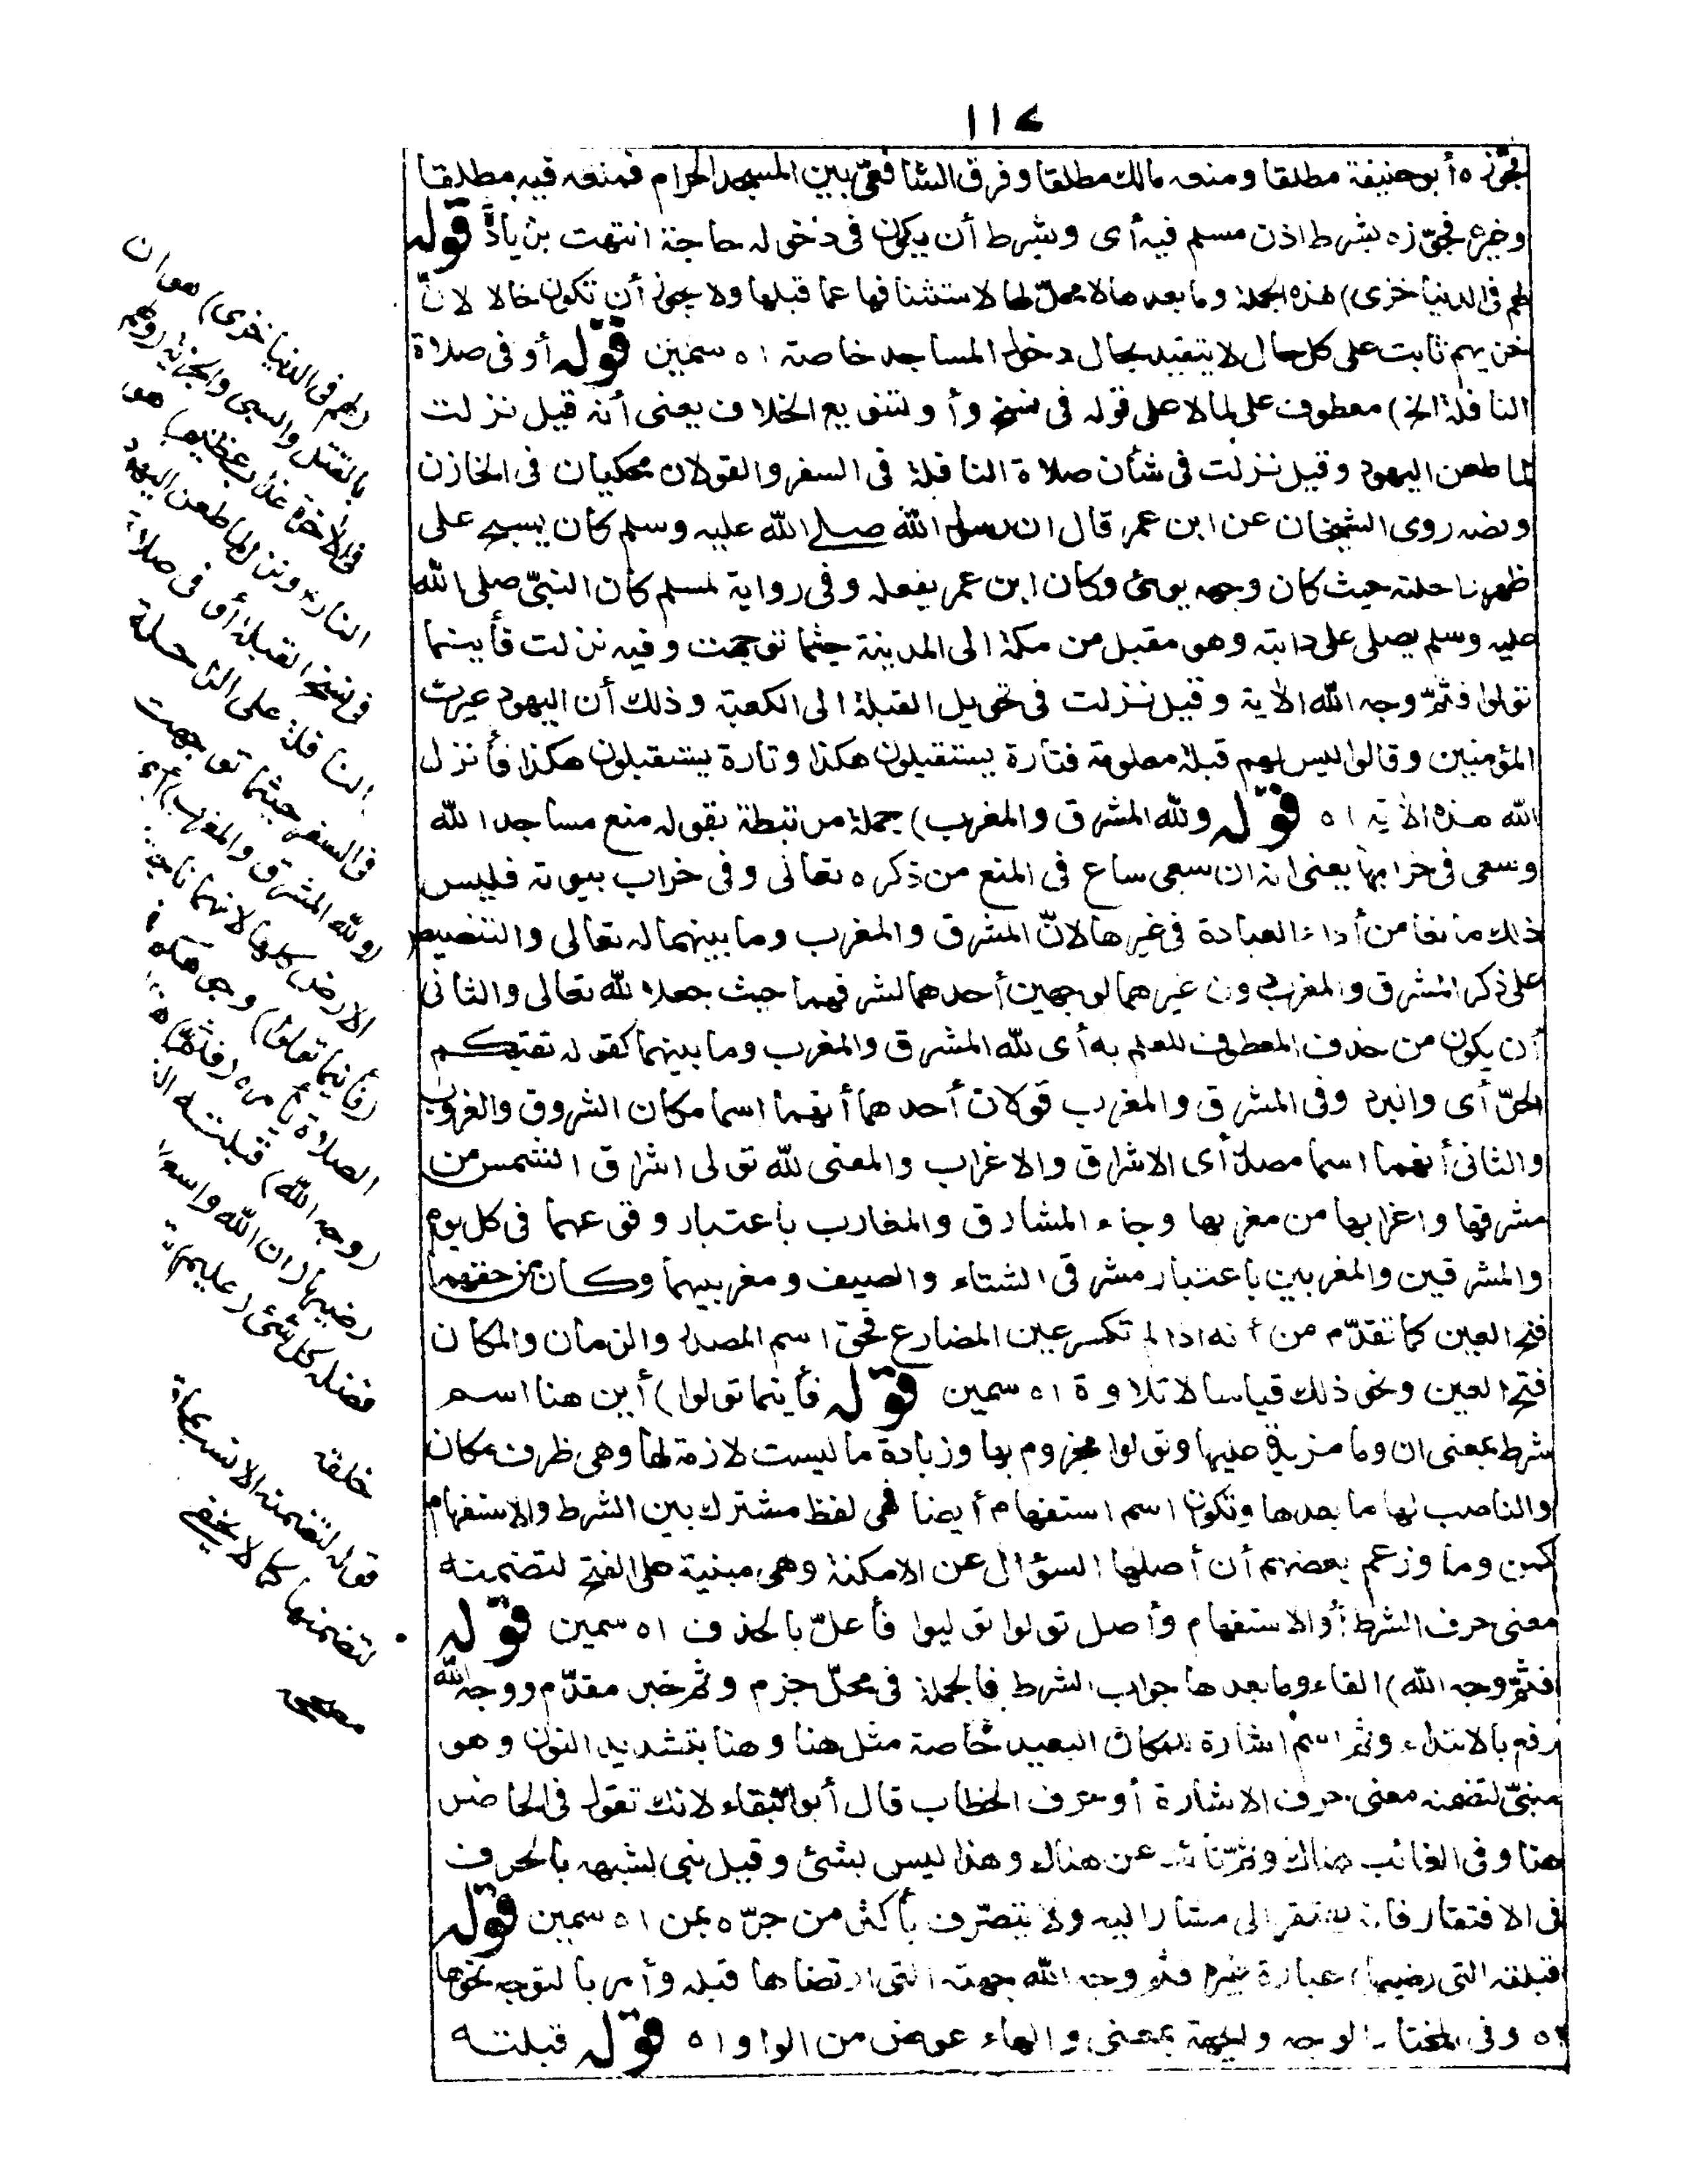 ١١٧
فجوّزه أبو حنيفة مطلقا ومنعه مالك مطلقا وفرق الشافعيّ بين المسجد الحرام فمنعه فيه مطلقا
وغيره فجوّزه بشرط اذن مسلم فيه أى وبشرط أن يكون فى دخوله حاجة انتهت بزيادة قوله
لهم فى الدنيا خزى) هذه الجملة وما بعدها لا محلّ لها لاستئنافها عما قبلها ولا يجوز أن تكون حالا لانّ
خزيهم ثابت على كل حال لا يتقيد بحال دخول المساجد خاصة اه سمين قوله أو فى صلاة
النافلة الخ) معطوف على لما لا على قوله فى نسخ وأو لتنويع الخلاف يعنى أنه قيل نزلت
لما طعن اليهود وقيل نزلت فى شأن صلاة النافلة فى السفر والقولان محكيان فى الخازن
ونصه روى الشيخان عن ابن عمر قال ان رسول الله صلى الله عليه وسلم كان يسبح على
ظهر راحلته حيث كان وجهه يومئ وكان ابن عمر يفعله وفى رواية لمسلم كان النبيّ صلى الله
عليه وسلم يصلى على دابته وهو مقبل من مكة الى المدينة حيثما توجهت وفيه نزلت فأينما
تولوا فثمّ وجه الله الآية وقيل نزلت فى تحويل القبلة الى الكعبة وذلك أن اليهود عيرت
المؤمنين وقالوا ليس لهم قبلة معلومة فتارة يستقبلون هكذا وتارة يستقبلون هكذا فأنزل
الله هذه الآية اه قوله ولله المشرق والمغرب) جملة مرتبطة بقوله منع مساجد الله
وسعى فى خرابها يعنى انه ان سعى ساع فى المنع من ذكره تعالى وفى خراب بيوته فليس
ذلك مانعا من أداء العبادة فى غيرها لانّ المشرق والمغرب وما بينهما له تعالى والتنصيص
على ذكر المشرق والمغرب دون غيرهما لوجهين أحدهما لشرفهما حيث جعلا لله تعالى والثانى
أن يكون من حذف المعطوف للعلم به أى لله المشرق والمغرب وما بينهما كقوله تقيكم
الحرّ أى والبرد وفى المشرق والمغرب قولان أحدهما أنهما اسما مكان الشروق والغروب
والثانى أنهما اسما مصدر أى الاشراق والاغراب والمعنى لله تولى اشراق الشمس من
مشرقها واغرابها من مغربها وجاء المشارق والمغارب باعتبار وقوعهما فى كل يوم
والمشرقين والمغربين باعتبار مشرقى الشتاء والصيف ومغربيهما وكان من حقهما
فتح العين كما تقدّم من أنه اذا لم تكسر عين المضارع فحق اسم المصدر والزمان والمكان
فتح العين ونحو ذلك قياسا لا تلاوة اه سمين قوله فأينما تولوا) أين هنا اسم
شرط بمعنى ان وما مزيدة عليها وتولوا مجزوم بها وزيادة ما ليست لازمة لها وهى ظرف مكان
والناصب لها ما بعدها وتكون اسم استفهام أيضا فهى لفظ مشترك بين الشرط والاستفهام
كمن وما وزعم بعضهم أن أصلها السؤال عن الامكنة وهى مبنية على الفتح لتضمنه
معنى حرف الشرط أو الاستفهام وأصل تولوا توليوا فأعلّ بالحذف اه سمين قوله
فثمّ وجه الله) الفاء وما بعدها جواب الشرط فالجملة فى محلّ جزم وثم خبر مقدّم ووجه الله
رفع بالابتداء وثم اسم اشارة للمكان البعيد خاصة مثل هنا وهنا بتشديد النون وهو
مبنىّ لتضمنه معنى حرف الاشارة أو حرف الخطاب قال أبو البقاء لانك تقول فى الحاضر
هنا وفى الغائب هناك وثمّ نائب عن هناك وهذا ليس بشئ وقيل بنى لشبهه بالحرف
فى الافتقار فانه يفتقر الى مشار اليه ولا يتصرّف بأكثر من جرّه بمن اه سمين قوله
قبلته التى رضيها) عبارة غيره فثم وجه الله جهته التى ارتضاها قبلة وأمر بالتوجه نحوها
اه وفى المختار الوجه والجهة بمعنى والهاء عوض من الواو اه قوله قبلته
(لهم فى الدنيا خزى) هوان
بالقتل والسبى والجزية (ولهم
فى الآخرة عذاب عظيم) هو
النار ونزل لما طعن اليهود
فى نسخ القبلة أو فى صلاة
النافلة على الراحلة
فى السفر حيثما توجهت
(ولله المشرق والمغرب) أى
الارض كلها لانهما ناحيتا
(فأينما تولوا) وجوهكم فى
الصلاة بأمره (فثمّ) هناك
(وجه الله) قبلته التى
رضيها (ان الله واسع)
فضله كل شئ (عليم)
خلقه
قوله لتضمنه الانسب
لتضمنها كما لا يخفى
مصححه